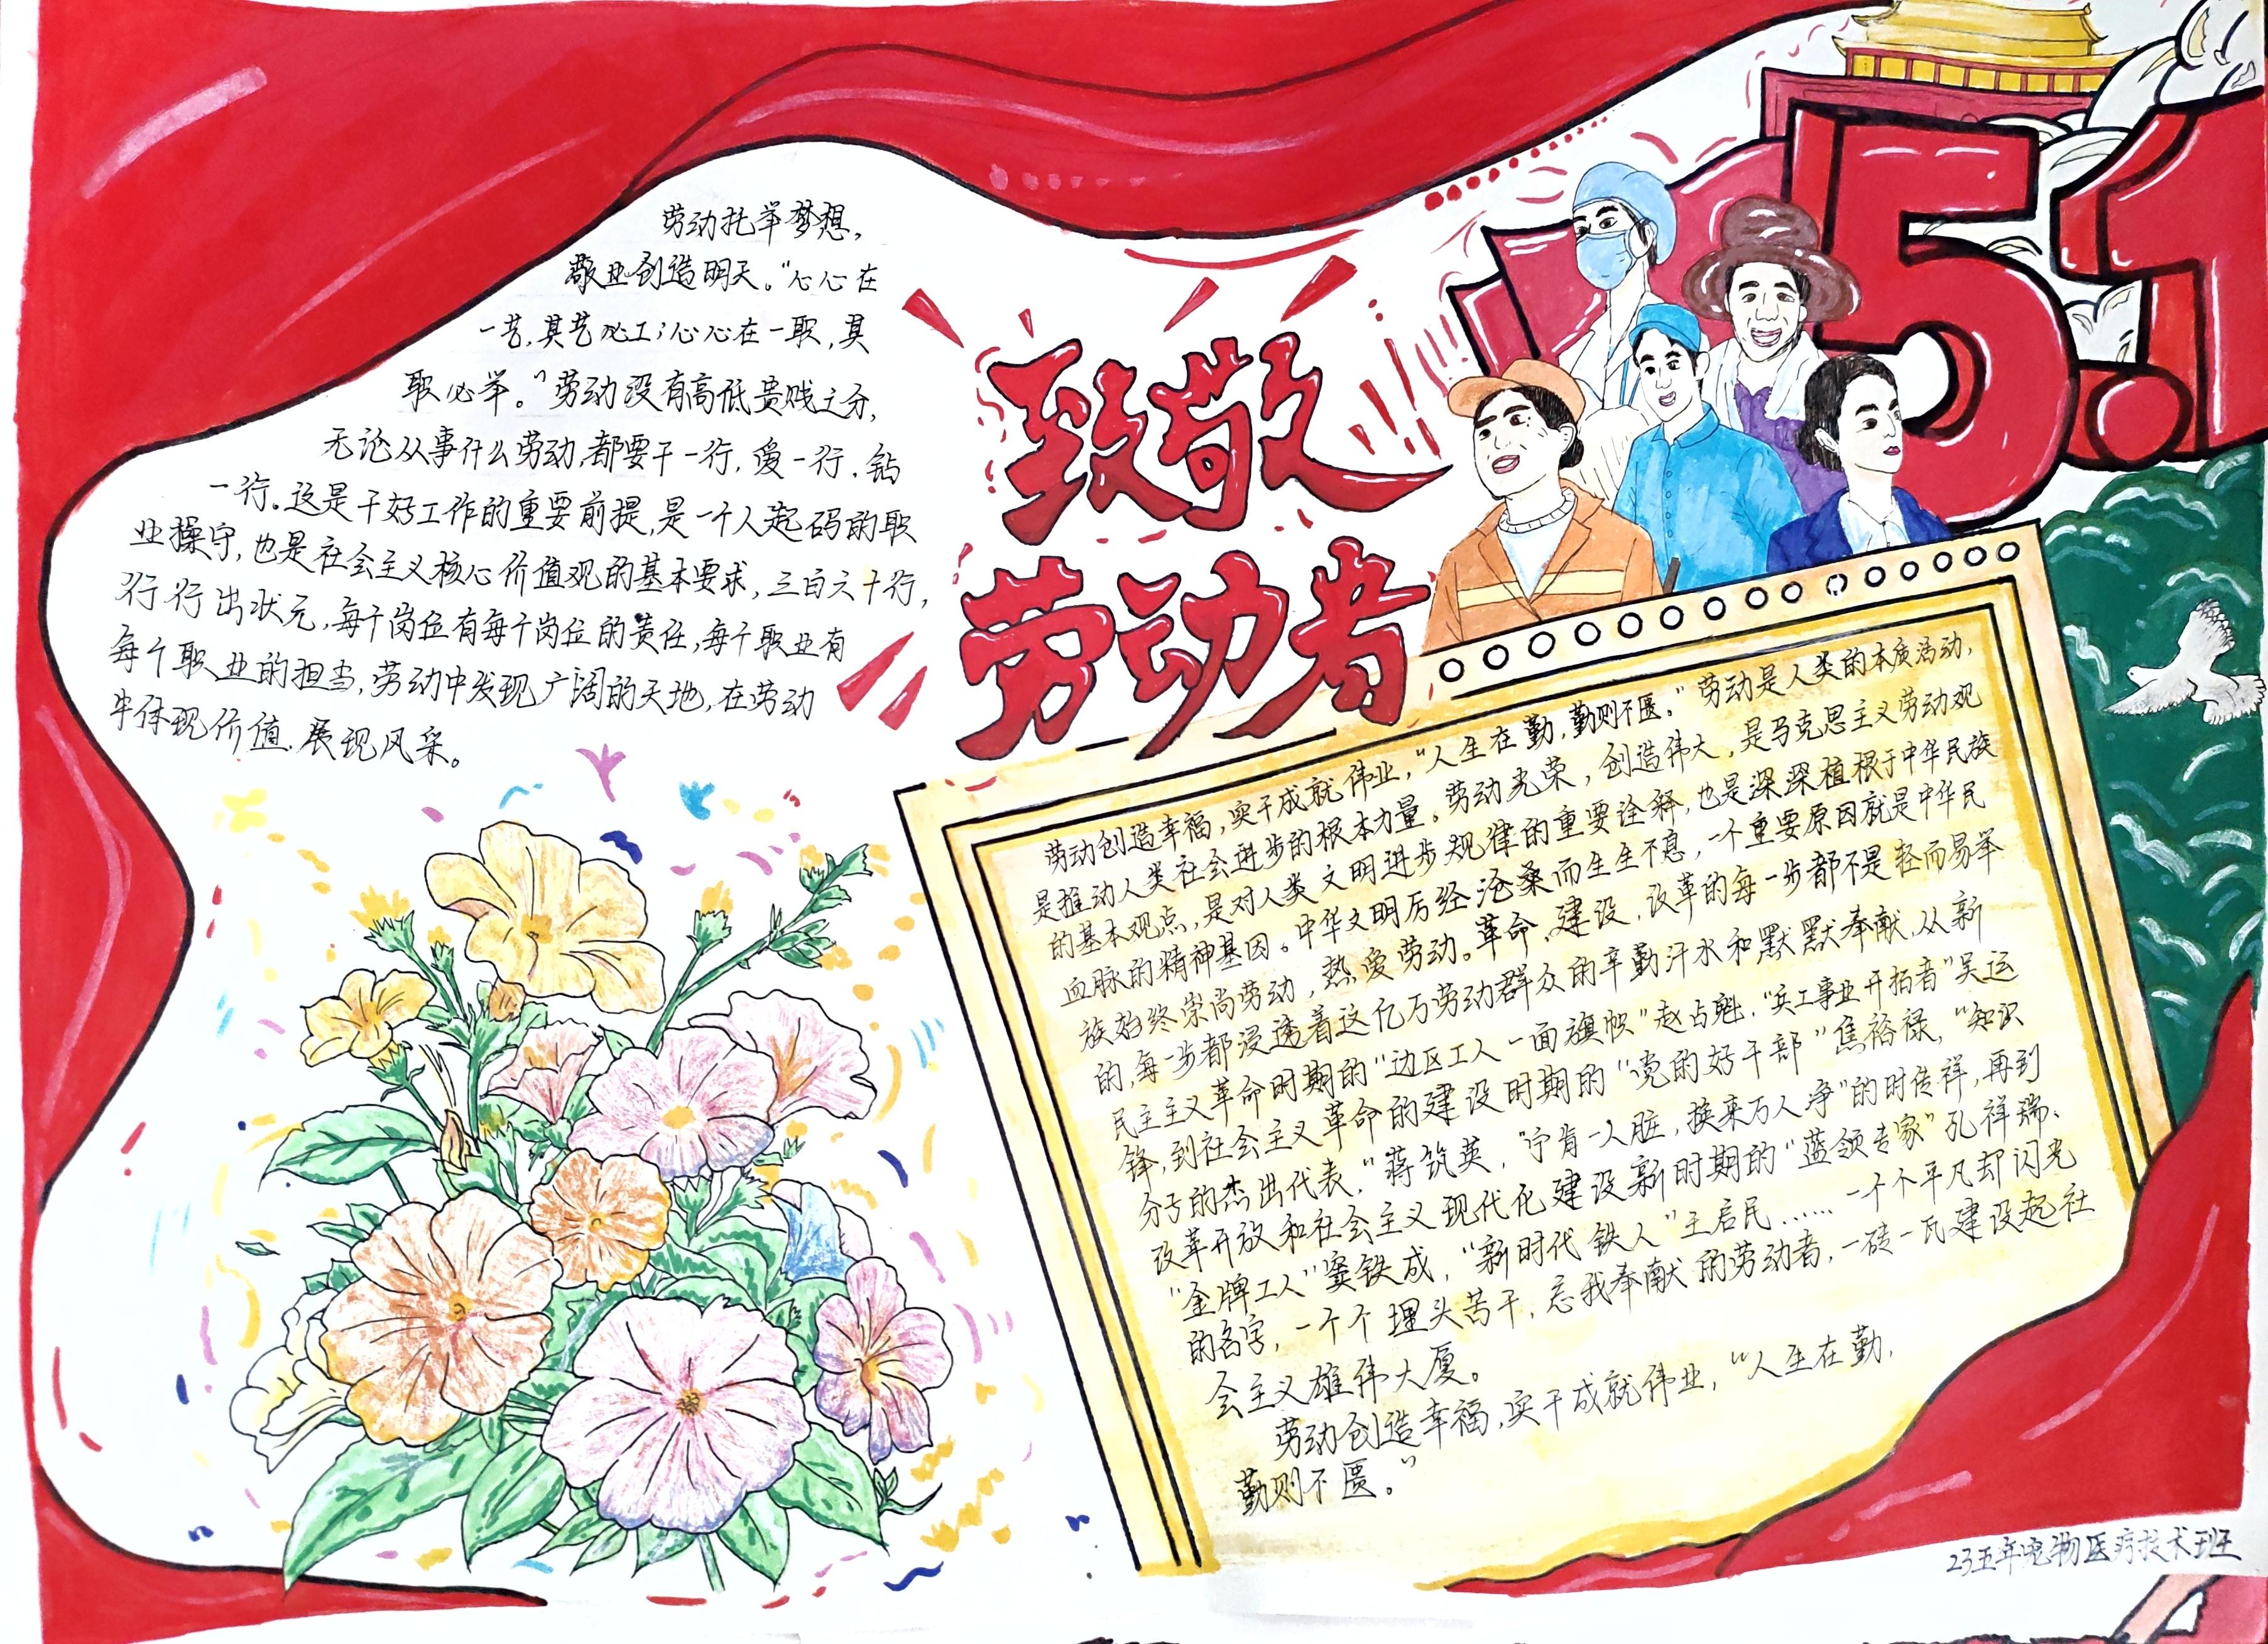 劳动托举梦想，
敬业创造明天。“心心在
一艺，其艺必工；心心在一职，其
职必举。”劳动没有高低贵贱之分，
无论从事什么劳动，都要干一行，爱一行，钻
一行。这是干好工作的重要前提，是一个人起码的职
业操守，也是社会主义核心价值观的基本要求，三百六十行，
行行出状元，每个岗位有每个岗位的责任，每个职业有
每个职业的担当，劳动中发现广阔的天地，在劳动
中体现价值、展现风采。
致敬
劳动者
5.1
劳动创造幸福，实干成就伟业，“人生在勤，勤则不匮。”劳动是人类的本质活动，
是推动人类社会进步的根本力量。劳动光荣，创造伟大，是马克思主义劳动观
的基本观点，是对人类文明进步规律的重要诠释，也是深深植根于中华民族
血脉的精神基因。中华文明历经沧桑而生生不息，一个重要原因就是中华民
族始终崇尚劳动，热爱劳动。革命、建设，改革的每一步都不是轻而易举
的，每一步都浸透着这亿万劳动群众的辛勤汗水和默默奉献，从新
民主主义革命时期的“边区工人一面旗帜”赵占魁，“兵工事业开拓者”吴运
铎，到社会主义革命的建设时期的“党的好干部”焦裕禄，“知识
分子的杰出代表，“蒋筑英，“宁肯一人脏，换来万人净”的时传祥，再到
改革开放和社会主义现代化建设新时期的“蓝领专家”孔祥瑞、
“金牌工人”窦铁成，“新时代铁人”王启民……一个个平凡却闪光
的名字，一个个埋头苦干，忘我奉献的劳动者，一砖一瓦建设起社
会主义雄伟大厦。
劳动创造幸福，实干成就伟业，“人生在勤，
勤则不匮。”
23五年宠物医疗技术班